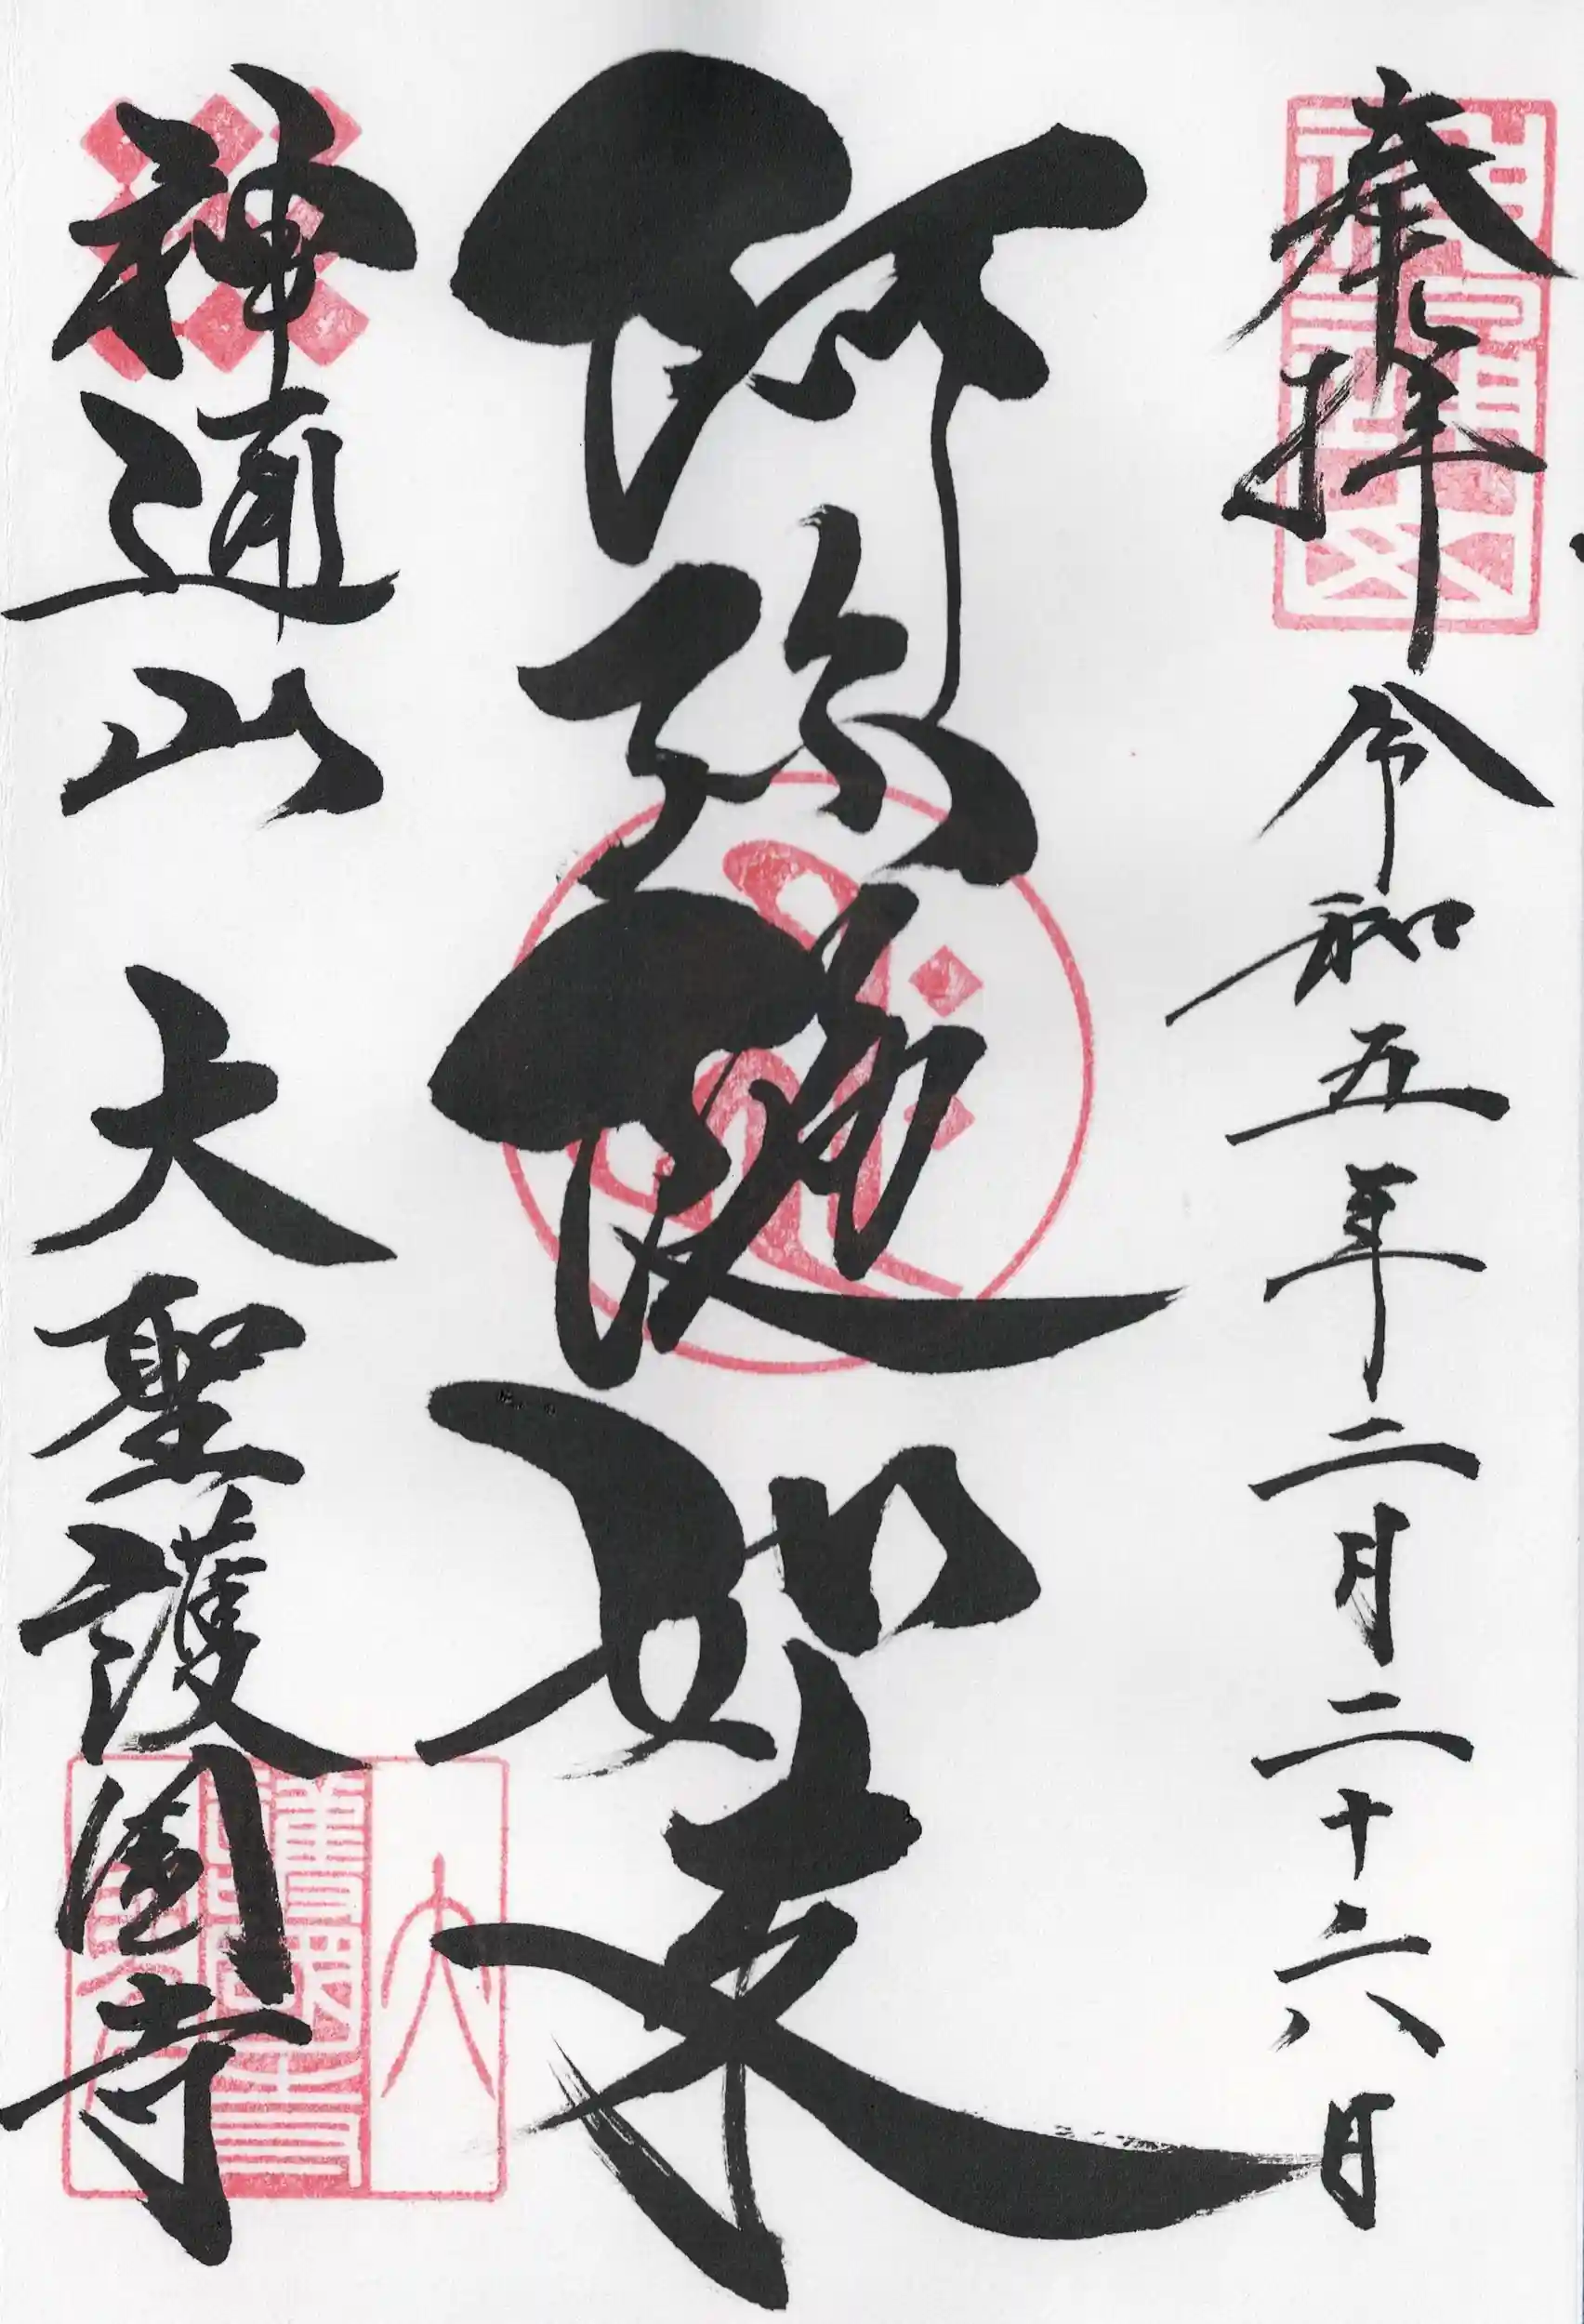 奉拝 令和五年二月二十六日
阿弥陀如来
神通山 大聖護國寺